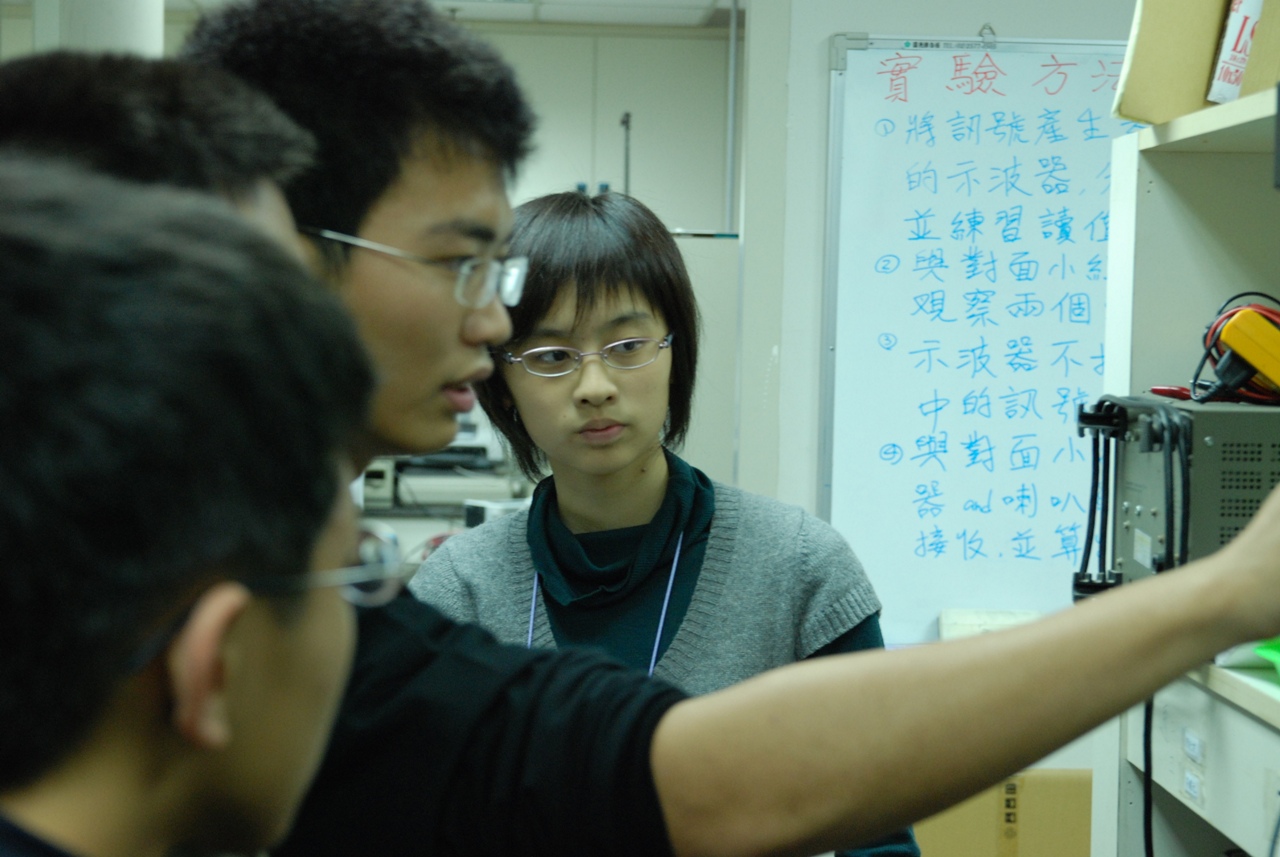 實驗方法
① 將訊號產生
的示波器,
並練習讀值
② 與對面小組
觀察兩個
③ 示波器不
中的訊號
④ 與對面小
器 and 喇叭
接收,並算